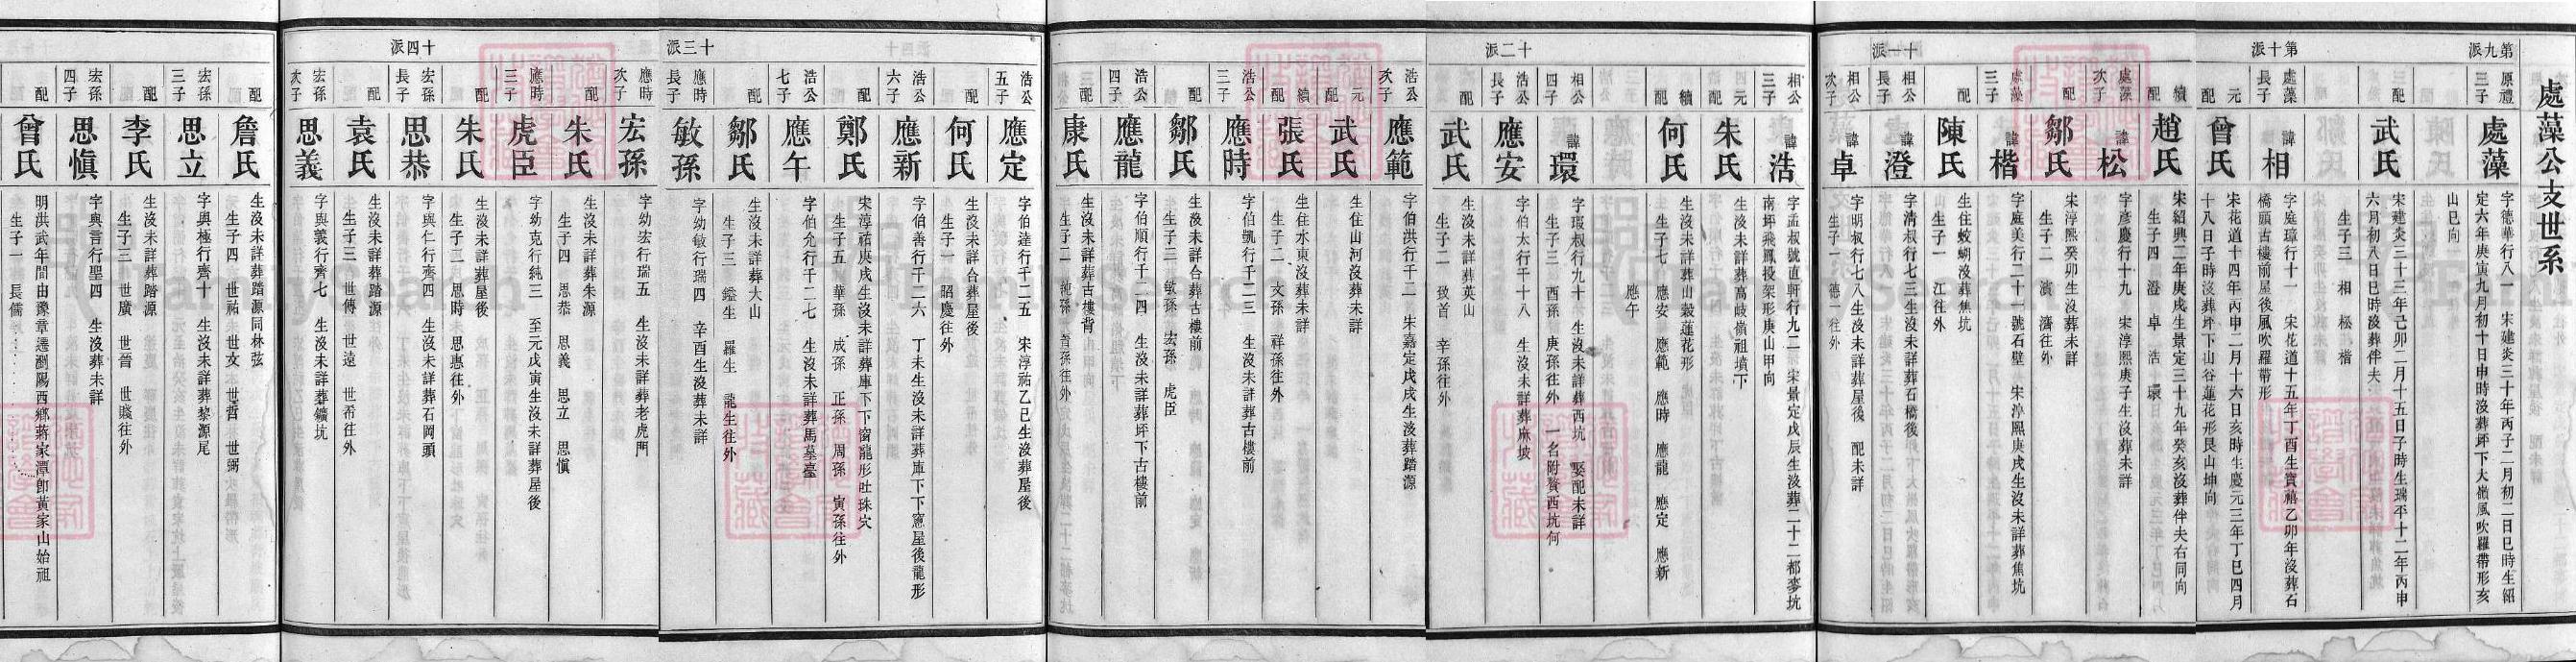 處藻公支世系
第九派
原禮三子
處藻
字德華行八一 宋建炎三十年丙子二月初二日巳時生紹
定六年庚寅九月初十日申時沒葬坪下大嶺風吹羅帶形亥
山巳向
配
武氏
宋建炎三十三年己卯二月十五日子時生瑞平十二年丙申
六月初八日巳時沒葬伴夫
生子三 相 松 楷
第十派
處藻長子
諱相
字庭璋行十一 宋花道十五年丁酉生寶禧乙卯年沒葬石
橋頭古樓前屋後風吹羅帶形
元配
曾氏
宋花道十四年丙申二月十六日亥時生慶元三年丁巳四月
十八日子時沒葬坪下山谷蓮花形艮山坤向
續配
趙氏
宋紹興二年庚戌生景定三十九年癸亥沒葬伴夫右同向
生子四 澄 卓 浩 環
處藻次子
諱松
字彥慶行十九 宋淳熙庚子生沒葬未詳
配
鄒氏
宋淳熙癸卯生沒葬未詳
生子二 濱 濟往外
處藻三子
諱楷
字庭美行二十一號石壁 宋淳熙庚戌生沒未詳葬焦坑
配
陳氏
生住蛟蝴沒葬焦坑
生子一 江往外
十一派
相公長子
諱澄
字清叔行七三生沒未詳葬石橋後
相公次子
諱卓
字明叔行七八生沒未詳葬屋後 配未詳
生子一 德一往外
相公三子
諱浩
字孟叔號直軒行九二 宋景定戊辰生沒葬二十二都麥坑
南坪飛鳳投架形庚山甲向
元配
朱氏
生沒未詳葬高岐嶺祖墳下
續配
何氏
生沒未詳葬山穀蓮花形
生子七 應安 應範 應時 應龍 應定 應新
應午
相公四子
諱環
字瑗叔行九十 生沒未詳葬西坑 娶配未詳
生子三 酉孫 庚孫往外 一名附贅西坑何
十二派
浩公長子
應安
字伯太行千十八 生沒未詳葬麻坡
配
武氏
生沒未詳葬英山
生子二 致首 辛孫往外
浩公次子
應範
字伯洪行千二 朱嘉定戊戌生沒葬踏源
元配
武氏
生住山河沒葬未詳
續配
張氏
生住水東沒葬未詳
生子二 文孫 祥孫往外
浩公三子
應時
字伯凱行千二三 生沒未詳葬古樓前
配
鄒氏
生沒未詳合葬古樓前
生子三 敏孫 宏孫 虎臣
浩公四子
應龍
字伯順行千二四 生沒未詳葬坪下古樓前
配
康氏
生沒未詳葬古樓背
生子二 純孫 首孫往外
浩公五子
應定
字伯達行千二五 宋淳祐乙巳生沒葬屋後
配
何氏
生沒未詳合葬屋後
生子一 閤慶往外
浩公六子
應新
字伯善行千二六 丁未生沒未詳葬庫下下窻屋後龍形
配
鄭氏
宋淳祐庚戌生沒未詳葬庫下下窗龍形吐珠穴
生子五 華孫 成孫 正孫 周孫 寅孫往外
浩公七子
應午
字伯允行千二七 生沒未詳葬馬墓臺
配
鄒氏
生沒未詳葬大山
生子三 鎰生 羅生 龍生往外
十三派
應時長子
敏孫
字幼敏行瑞四 辛酉生沒葬未詳
應時次子
宏孫
字幼宏行瑞五 生沒未詳葬老虎門
配
朱氏
生沒未詳葬朱源
生子四 思恭 思義 思立 思愼
應時三子
虎臣
字幼克行純三 至元戊寅生沒未詳葬屋後
配
朱氏
生沒未詳葬屋後
生子二 思時 思惠往外
十四派
宏孫長子
思恭
字與仁行齊四 生沒未詳葬石岡頭
配
袁氏
生沒未詳葬踏源
生子三 世傳 世遠 世希往外
宏孫次子
思義
字與義行齊七 生沒未詳葬鑛坑
配
詹氏
生沒未詳葬踏源同林弦
生子四 世祐 世文 世哲 世弼
宏孫三子
思立
字與極行齊十 生沒未詳葬黎源尾
配
李氏
生沒未詳葬踏源
生子三 世廣 世晉 世賤往外
宏孫四子
思愼
字與言行聖四 生沒葬未詳
配
曾氏
明洪武年間由豫章遷瀏陽西鄉蔣家潭卽黃家山始祖
生子一 長儒